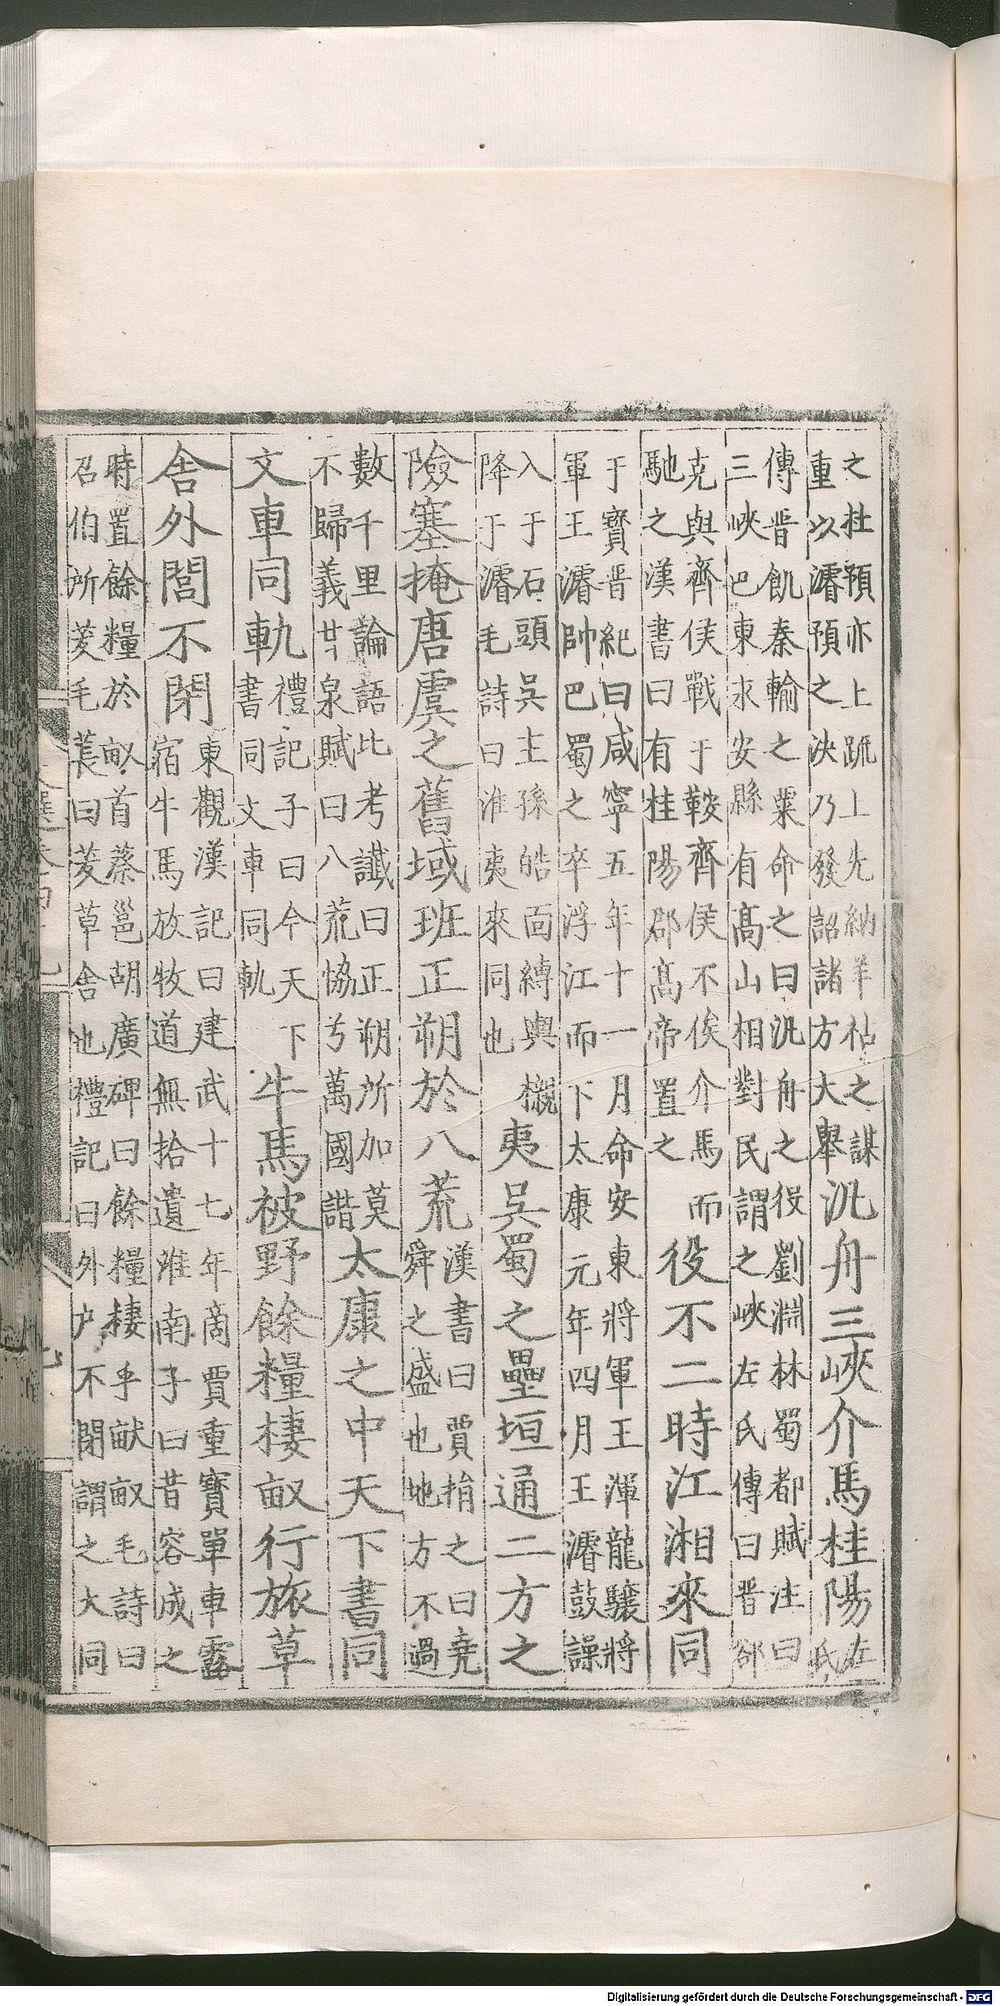 之杜預亦上䟽上先納羊祜之謀
重以濬預之決乃發詔諸方大舉
汎舟三峽介馬桂陽
左
氏
傳晋飢秦輸之粟命之曰汎舟之役劉淵林蜀都賦注曰
三峽巴東永安縣有高山相對民謂之峽左氏傳曰晋郤
克與齊侯戰于鞍齊侯不俟介馬而
馳之漢書曰有桂陽郡高帝置之
役不二時江湘來同
于寶晋紀曰咸寧五年十一月命安東將軍王渾龍驤將
軍王濬帥巴蜀之卒浮江而下太康元年四月王濬鼓譟
入于石頭吳主孫皓面縛輿櫬
降于濬毛詩曰淮夷來同也
夷吳蜀之壘垣通二方之
險塞掩唐虞之舊域班正朔於八荒
漢書曰賈捐之曰堯
舜之盛也地方不過
數千里論語比考讖曰正朔所加莫
不歸義甘泉賦曰八荒協兮萬國諧
太康之中天下書同
文車同軌
禮記子曰今天下
書同文車同軌
牛馬被野餘糧棲畝行旅草
舍外閭不閉
東觀漢記曰建武十七年商賈重寶單車露
宿牛馬放牧道無拾遺淮南子曰昔容成之
時置餘糧於畝首蔡邕胡廣碑曰餘糧棲乎猷畝毛詩曰
召伯所茇毛萇曰茇草舍也禮記曰外户不閉謂之大同
Digitalisierung gefördert durch die Deutsche Forschungsgemeinschaft - DFG